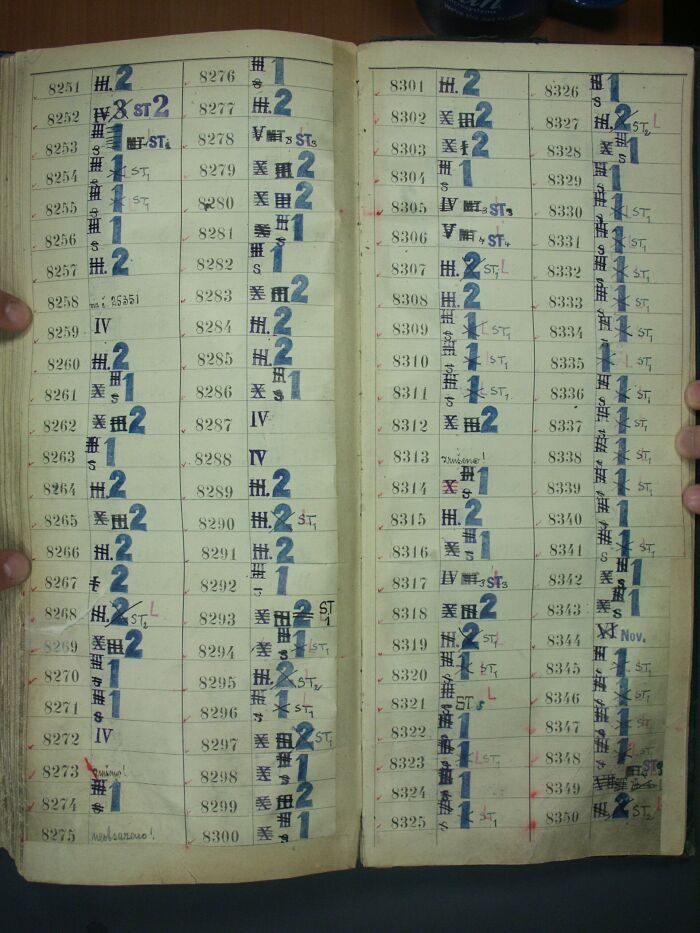 8251 III. 2
8252 IV 3 ST 2
8253 III s 1 ST1
8254 III s 1 ST1
8255 III s 1 ST1
8256 III s 1
8257 III. 2
8258
8259 IV
8260 III. 2
8261 X III s 1
8262 X III 2
8263 III s 1
8264 III. 2
8265 X III 2
8266 III. 2
8267 2
8268 III. 2 ST2 L
8269 X III 2
8270 III s 1
8271 III s 1
8272 IV
8273 zrušeno!
8274 III s 1
8275 neobsazeno!
8276 III s 1
8277 III. 2
8278 V ST3
8279 X III 2
8280 X III 2
8281 X III s 1
8282 III s 1
8283 X III 2
8284 III. 2
8285 III. 2
8286 X III s 1
8287 IV
8288 IV
8289 III. 2
8290 III. 2 ST1
8291 III. 2
8292 III 1
8293 X III 2 ST 1
8294 X III s 1 ST1
8295 III. 2 ST2
8296 III s 1 ST1
8297 X III 2 ST1
8298 X III s 1
8299 X III 2
8300 X III s 1
8301 III. 2
8302 X III 2
8303 X 2
8304 III s 1
8305 IV ST3
8306 V ST4
8307 III. 2 ST1 L
8308 III. 2
8309 III s 1 L ST1
8310 III s 1 ST1
8311 III s 1 L ST1
8312 X III 2
8313 zrušeno!
8314 X III s 1
8315 III. 2
8316 X III s 1
8317 IV ST3
8318 X III 2
8319 III. 2 ST1
8320 III s 1 ST1
8321 III s ST s L
8322 III s 1
8323 III s 1 L ST1
8324 III s 1
8325 III s 1 ST1
8326 III s 1
8327 III. 2 ST2 L
8328 X III s 1
8329 III s 1
8330 III s 1 ST1
8331 III s 1 ST1
8332 III s 1 ST1
8333 III s 1 ST1
8334 III s 1 ST1
8335 1 L ST1
8336 III s 1 ST1
8337 III s 1 ST1
8338 III s 1 ST1
8339 III s 1 ST1
8340 III s 1
8341 III s 1 ST1
8342 X III s 1
8343 X III s 1
8344 XI Nov.
8345 III s 1 ST1
8346 III s 1 ST1
8347 III s 1 ST1
8348 III s 1 L ST1
8349 ST3
8350 III. 2 ST2 L